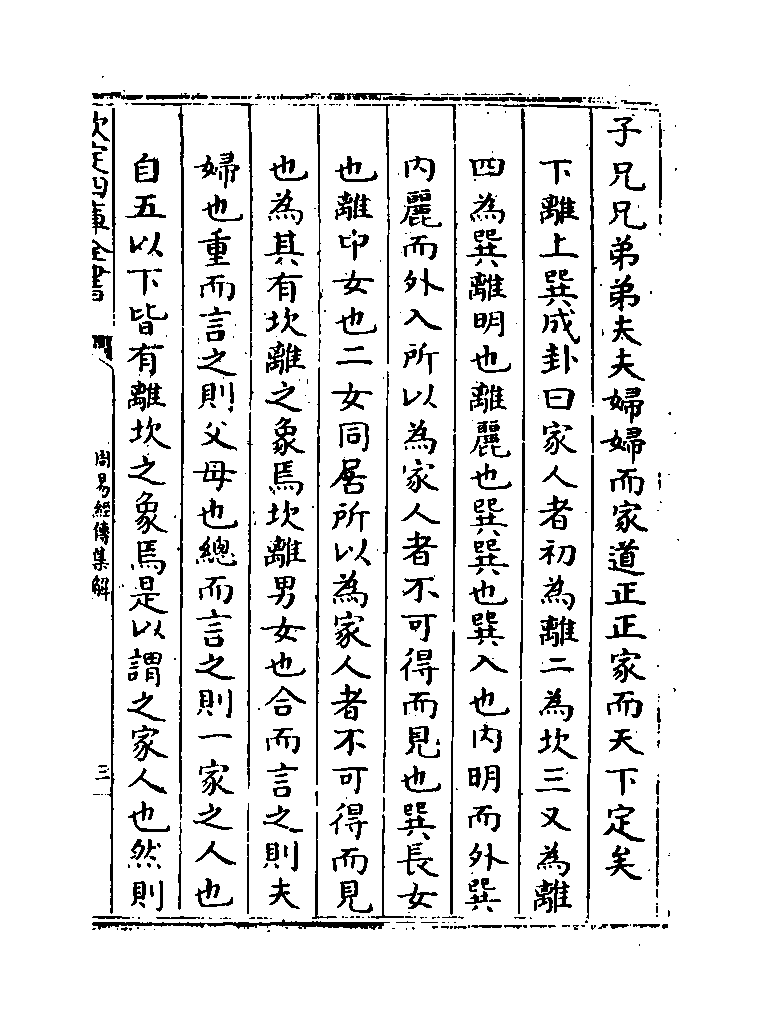 子兄兄弟弟夫夫婦婦而家道正正家而天下定矣
下離上巽成卦曰家人者初為離二為坎三又為離
四為巽離明也離麗也巽巽也巽入也内明而外巽
内麗而外入所以為家人者不可得而見也巽長女
也離中女也二女同居所以為家人者不可得而見
也為其有坎離之象焉坎離男女也合而言之則夫
婦也重而言之則父母也總而言之則一家之人也
自五以下皆有離坎之象焉是以謂之家人也然則
欽定四庫全書
周易經傳集解
三